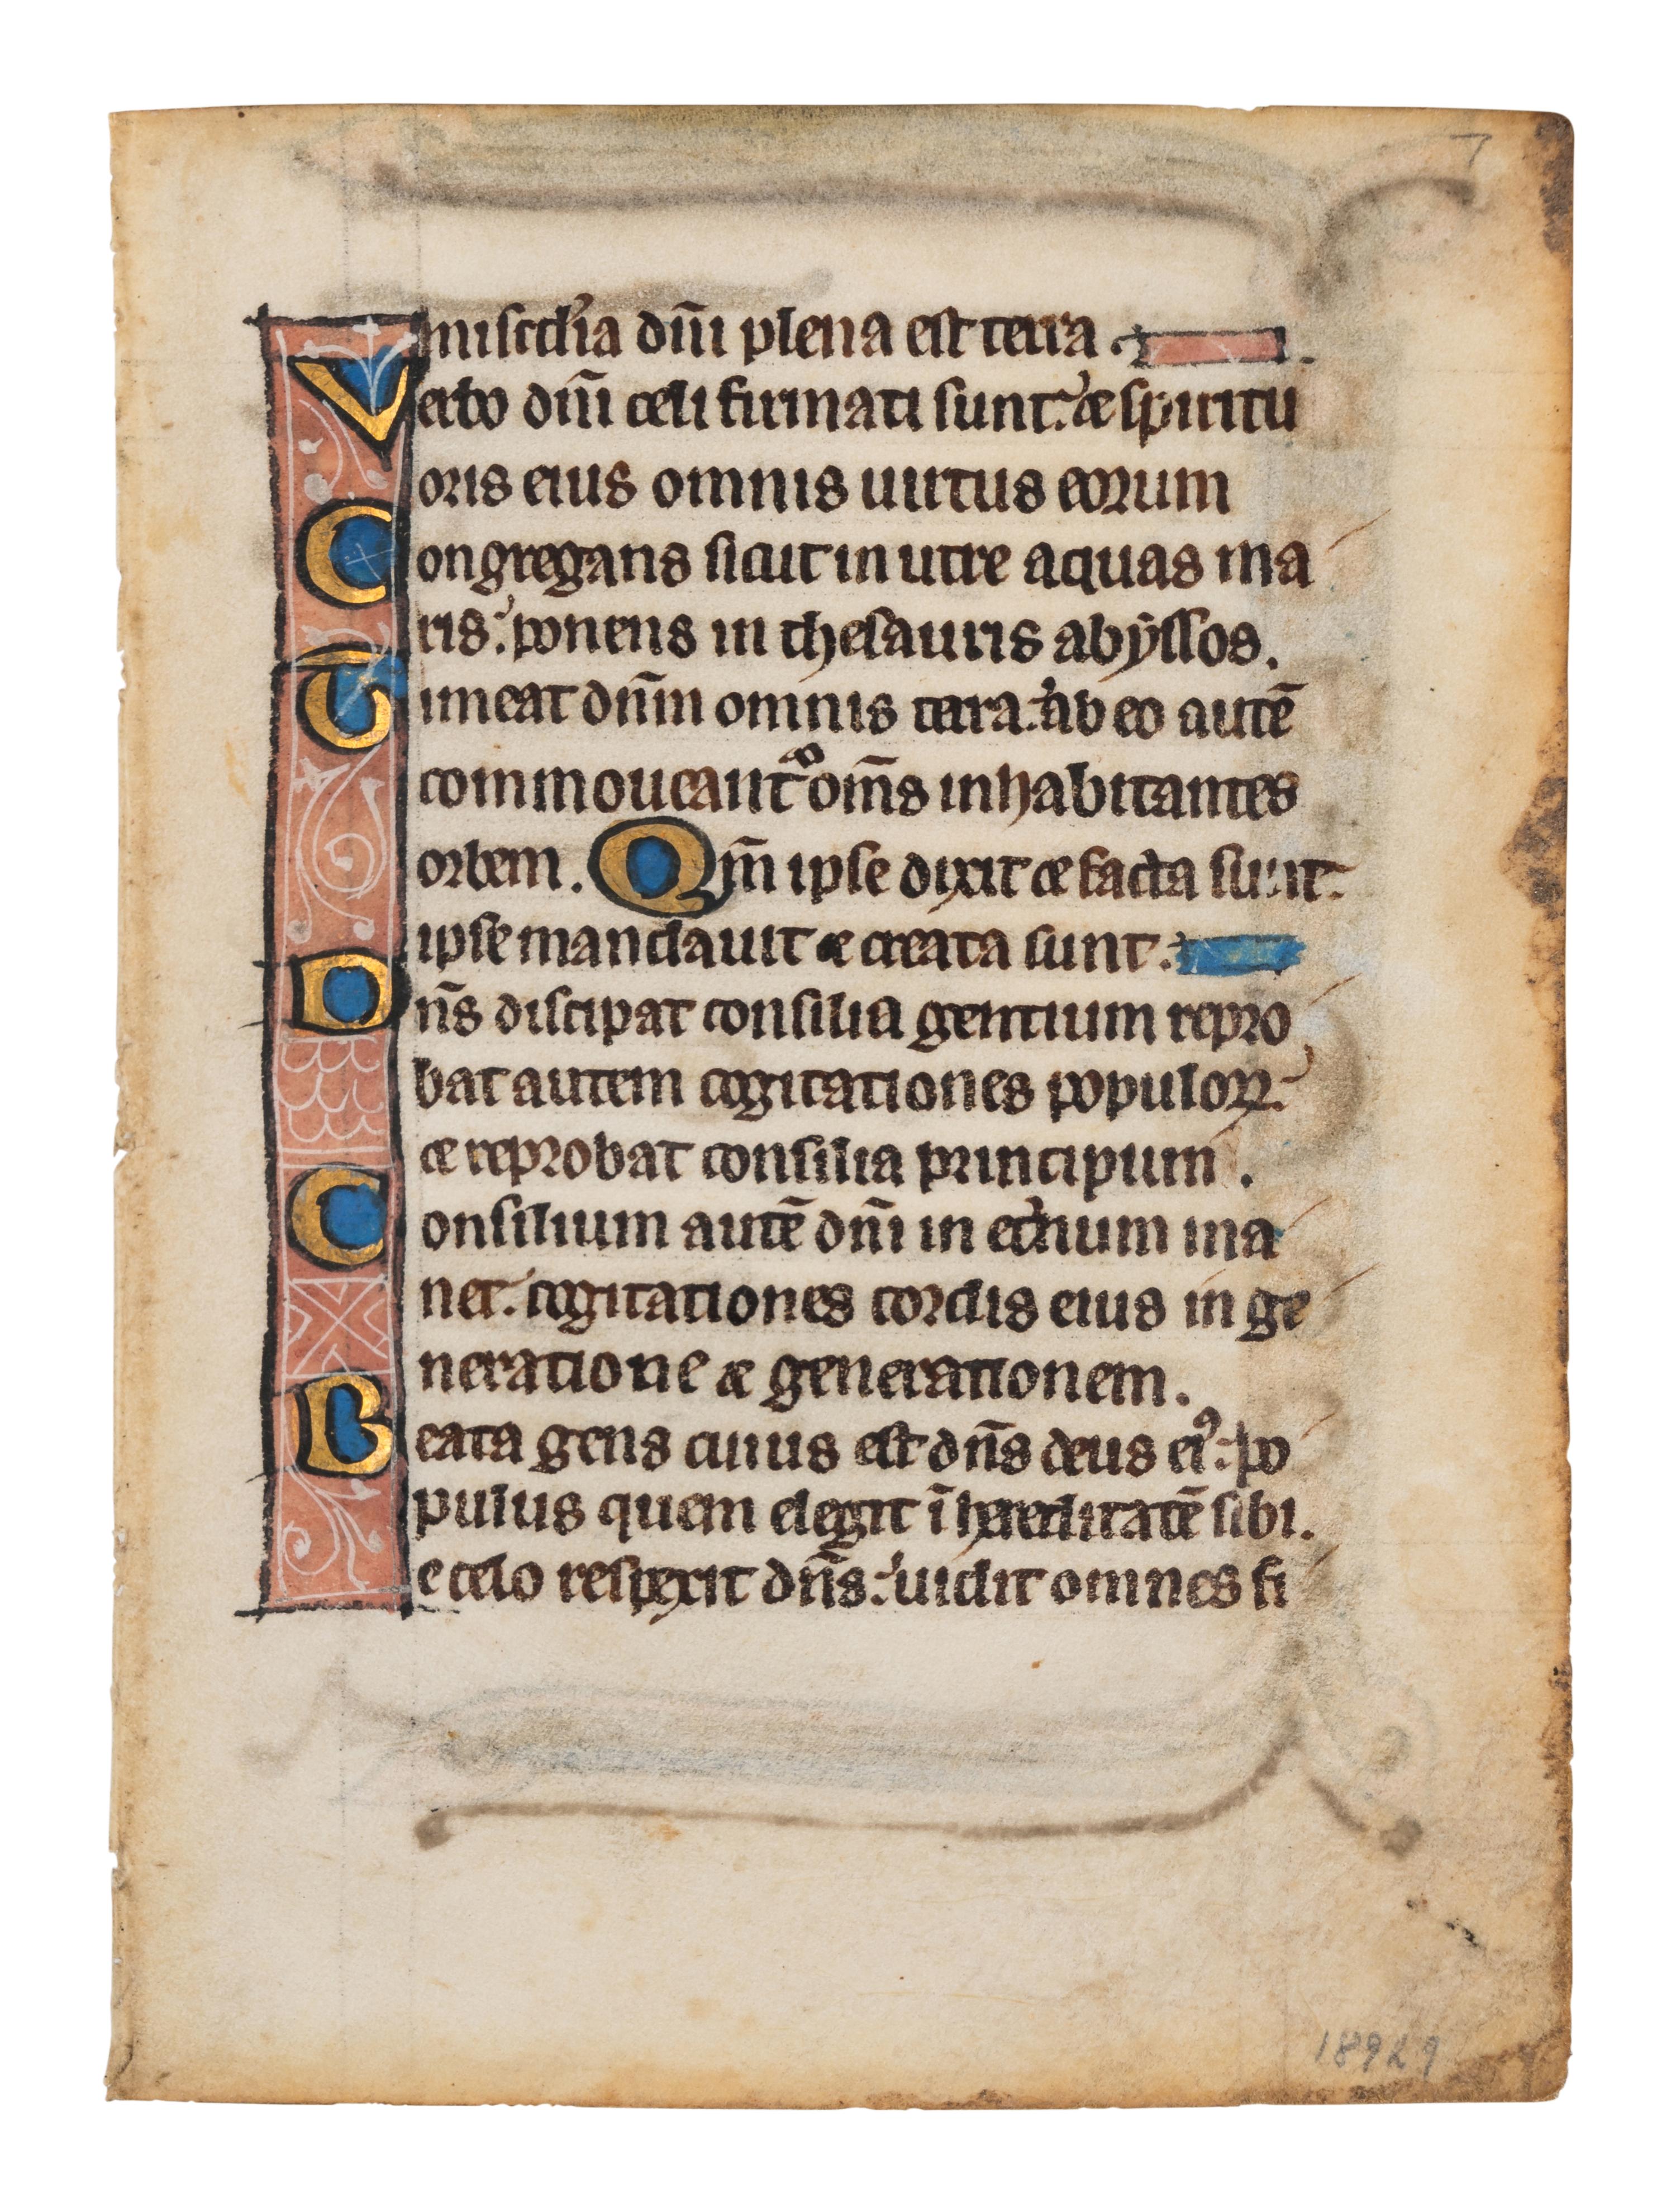 7
misc̄dia dn̄i plena est terra.
Verbo dn̄i celi firmati sunt: et spiritu
oris eius omnis uirtus eorum
Congregans sicut in utre aquas ma
ris: ponens in thesauris abyssos.
Timeat dn̄m omnis terra: ab eo autē
commoueantᷣ om̄s inhabitantes
orbem. Qm̄ ipse dixit et facta sunt:
ipse mandauit et creata sunt:
Dn̄s discipat consilia gentium repro
bat autem cogitationes populoꝝ:
et reprobat consilia principum.
Consilium autē dn̄i in et̓num ma
net: cogitationes cordis eius in ge
neratione et generationem.
Beata gens cuius est dn̄s deus eiꝰ: po
pulus quem elegit ī hereditatē sibi.
e celo respexit dn̄s: uidit omnes fi
18929